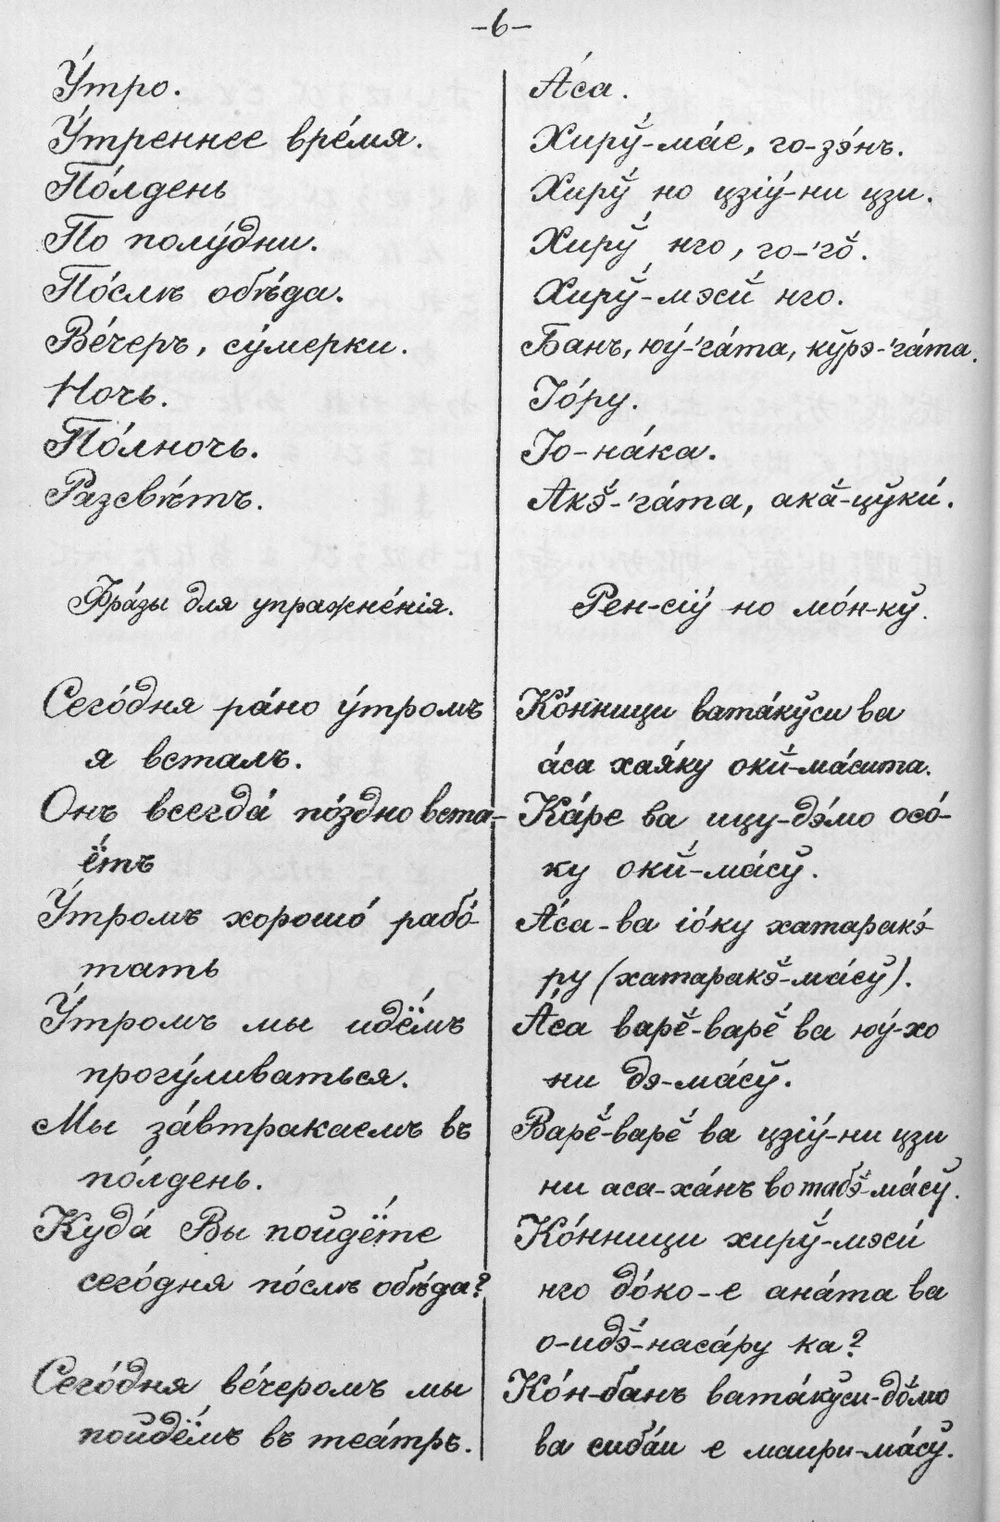 –6–
У́тро.
У́треннее вре́мя.
По́лдень
По полу́дни.
По́слѣ обѣ́да.
Ве́черъ, су́мерки.
Ночь.
По́лночь.
Разсвѣ́тъ.
Фра́зы для упражне́нія.
Сего́дня ра́но у́тромъ
я всталъ.
Онъ всегда́ по́здно вста-
ётъ
У́тромъ хорошо́ рабо́-
тать
У́тромъ мы идёмъ
прогу́ливаться.
Мы за́втракаемъ въ
по́лдень.
Куда́ Вы пойдёте
сего́дня по́слѣ обѣ́да?
Сего́дня ве́черомъ мы
пойдёмъ въ теа́тръ.
А́са.
Хирў́-ма́е, го-зэ́нъ.
Хирў́ но цзіу́-ни цзи.
Хирў́ нго, го-'го̆.
Хирў́-мэсй нго.
Банъ, юу́-'га́та, кўрэ-'га́та.
Іо́ру.
Іо-на́ка.
Акэ̆́-'га́та, акӑ-цўки́.
Рен-сіу́ но мо́н-кў.
Ко́нници вата́кўси ва
а́са хая́ку окй-ма́сита.
Ка́ре ва ицу-дэ́мо осо́-
ку окй-ма́сў.
А́са-ва іо́ку хатаракэ́-
ру (хатаракэ̆́-ма́сў).
А́са варӗ́-варӗ́ ва юу́-хо
ни дэ-ма́сў.
Варӗ́-варӗ́ ва цзіу́-ни цзи
ни аса-ха́нъ во табэ̆́-ма́сў.
Ко́нници хирў́-мэси́
нго до́ко-е ана́та ва
о-идэ̆́-наса́ру ка?
Ко́н-банъ вата́кўси-до́мо
ва сиба́и е маири-ма́сў.